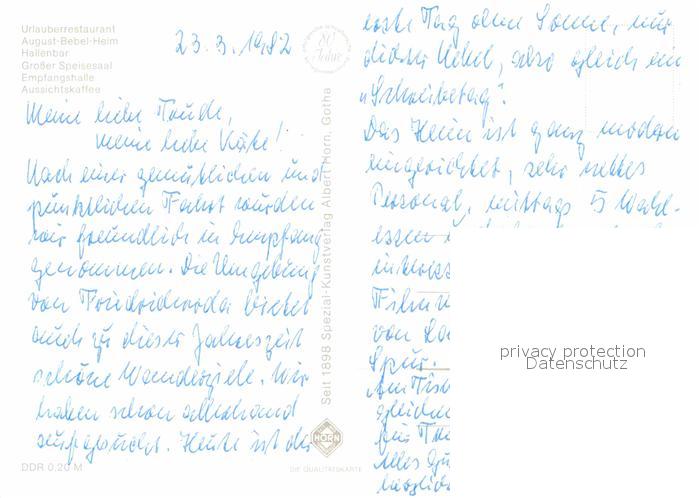 Urlauberrestaurant
August-Bebel-Heim
Hallenbar
Großer Speisesaal
Empfangshalle
Aussichtskaffee
23.3.1982
80 Jahre
Meine liebe Traude,
meine liebe Käte!
Nach einer gemütlichen und
pünktlichen Fahrt wurden
wir freundlich in Empfang
genommen. Die Umgebung
von Friedrichroda bietet
auch zu dieser Jahreszeit
schöne Wanderziele. Wir
haben schon allerhand
aufgesucht. Heute ist der
DDR 0,20 M
Seit 1898 Spezial-Kunstverlag Albert Horn, Gotha
HORN
DIE QUALITÄTSKARTE
erste Tag ohne Sonne, nur
dicker Nebel, also gleich ein
"Schreibetag".
Das Heim ist ganz modern
eingerichtet, sehr nettes
Personal, mittags 5 Wahl-
essen
Film
von
Spur.
Am Tisch
für
Alles Gu
herzlich
privacy protection
Datenschutz